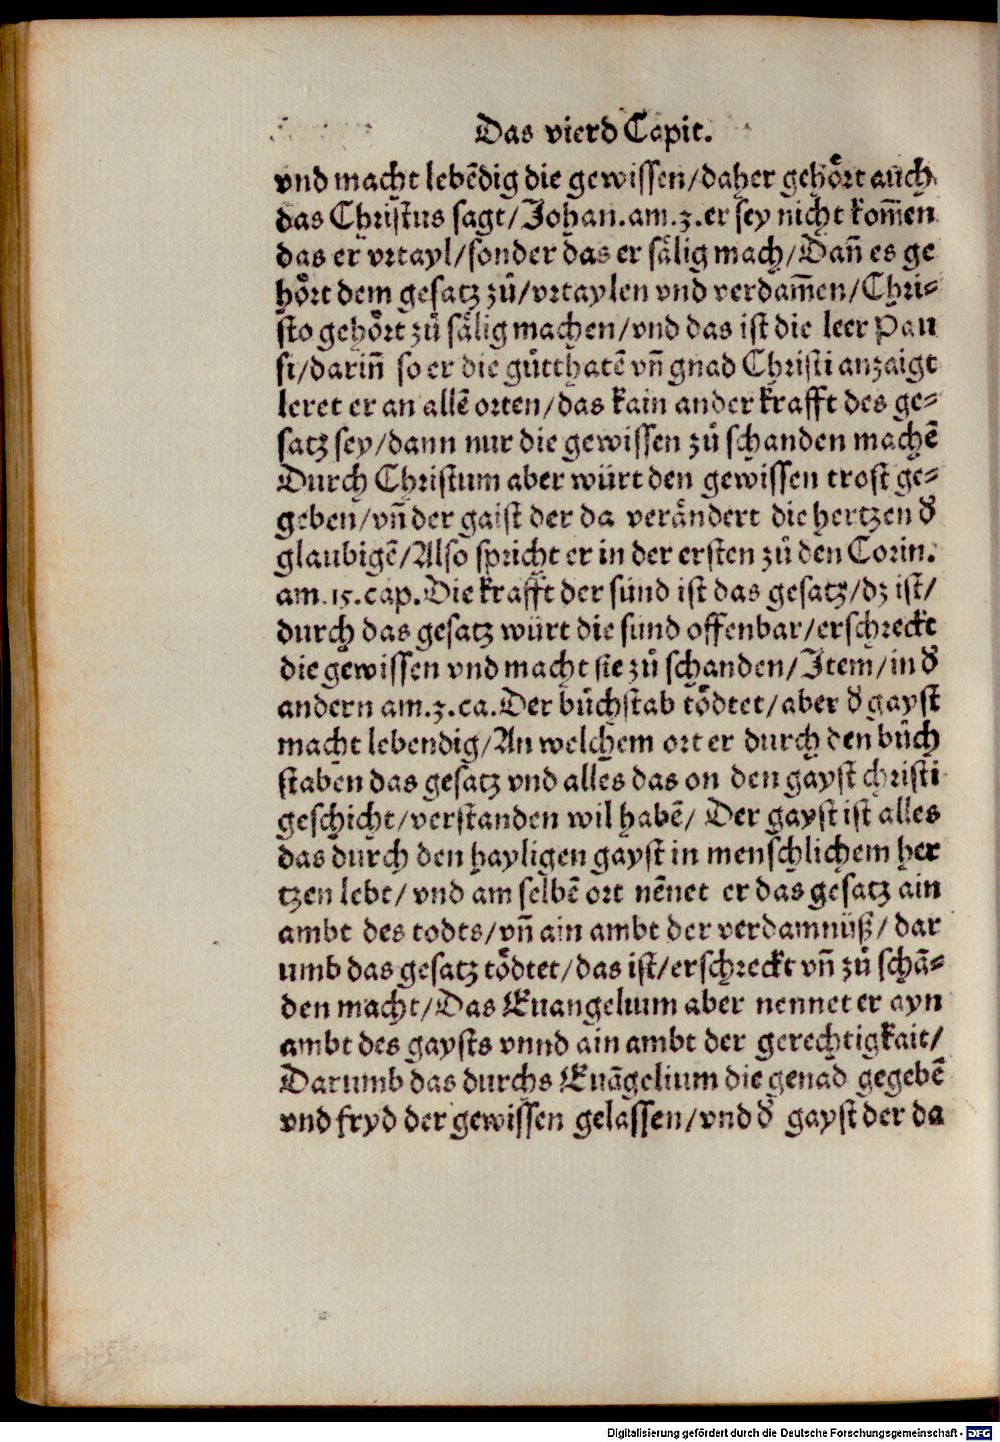 Das vierd Capit.
vnd macht lebẽdig die gewissen/daher gehoͤrt auch
das Christus sagt/Johan.am.3.er sey nicht kom̃en
das er vrtayl/sonder das er saͤlig mach/Dañ es ge
hoͤrt dem gesatz zuͦ/vrtaylen vnd verdam̃en/Chri⸗
sto gehoͤrt zuͦ saͤlig machen/vnd das ist die leer Pau
si/dariñ so er die guͤtthatẽ vñ gnad Christi anzaigt
leret er an allẽ orten/das kain ander krafft des ge⸗
satz sey/dann nur die gewissen zuͦ schanden machẽ
Durch Christum aber würt den gewissen trost ge⸗
geben/vñ der gaist der da veraͤndert die hertzen dˀ
glaubigẽ/Also spricht er in der ersten zuͦ den Corin.
am.15.cap.Die krafft der sünd ist das gesatz/dz ist/
durch das gesatz würt die sünd offenbar/erschreckt
die gewissen vnd macht sie zuͦ schanden/Item/in dˀ
andern am.3.ca.Der buͦchstab toͤdtet/aber dˀ gayst
macht lebendig/An welchem ort er durch den buͦch
staben das gesatz vnd alles das on den gayst christi
geschicht/verstanden wil habẽ/ Der gayst ist alles
das durch den hayligen gayst in menschlichem her
tzen lebt/ vnd am selbẽ ort nẽnet er das gesatz ain
ambt des todts/vñ ain ambt der verdamnüß/ dar
umb das gesatz toͤdtet/das ist/erschreckt vñ zuͦ schã⸗
den macht/Das Euangelium aber nennet er ayn
ambt des gaysts vnnd ain ambt der gerechtigkait/
Darumb das durchs Euãgelium die genad gegebẽ
vnd fryd der gewissen gelassen/vnd dˀ gayst der da
Digitalisierung gefördert durch die Deutsche Forschungsgemeinschaft - DFG